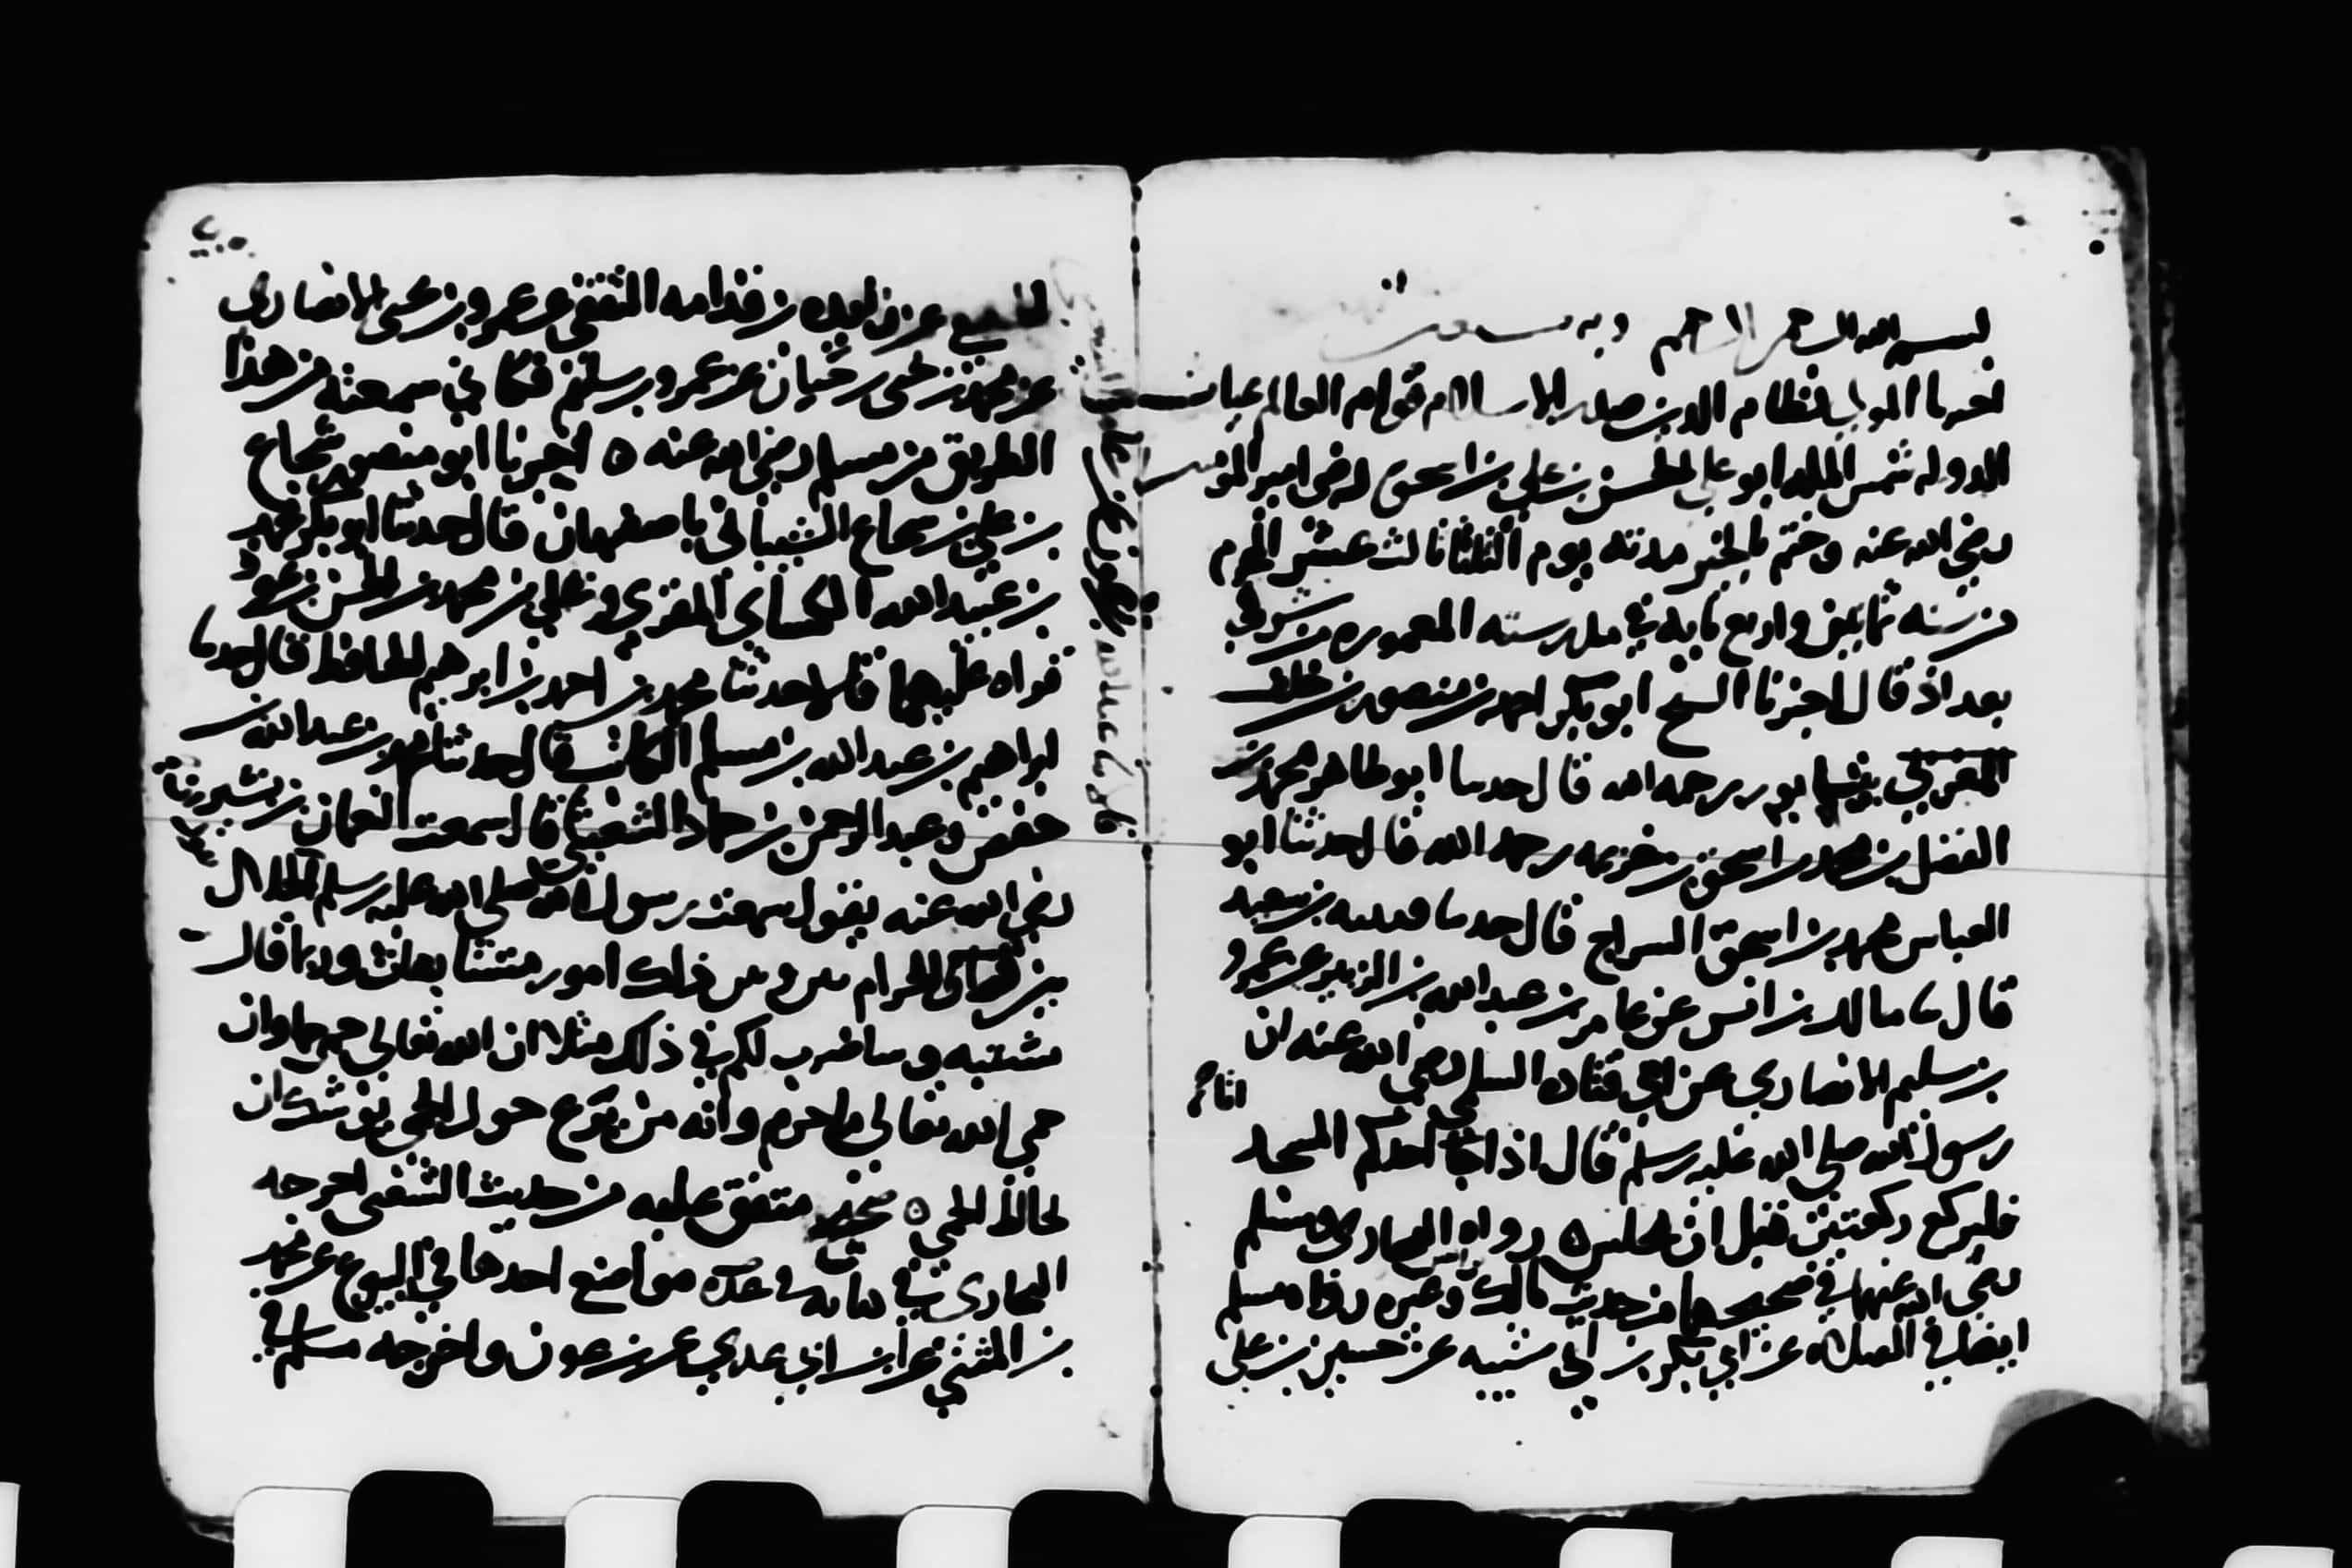 بسم الله الرحمن الرحيم وبه نستعين
اخبرنا المولى نظام الدين صدر الاسلام قوام العالم غياث
الدوله شمس المله ابو علي الحسن بن علي بن اسحق رضي امير المومنين
رضي الله عنه وختم بالخير مدته يوم الثلثا ثالث عشر المحرم
من سنه ثمانين واربع مايه في مدرسته المعموره من شرقي
بغداد قال اخبرنا الشيخ ابو بكر احمد بن منصور بن خلف
المغربي بنيسابور رحمه الله قال حدثنا ابو طاهر محمد بن
الفضل بن محمد بن اسحق بن خزيمه رحمه الله قال حدثنا ابو
العباس محمد بن اسحق السراج قال حدثنا قتيبه بن سعيد
قال ثنا مالك بن انس عن عامر بن عبد الله بن الزبير عن عمرو
بن سليم الانصاري عن ابي قتاده السلمي رضي الله عنه ان
رسول الله صلى الله عليه وسلم قال اذا جا احدكم المسجد
فليركع ركعتين قبل ان يجلس ه رواه البخاري ومسلم
رضي الله عنهما في صحيحهما من حديث مالك بن انس وغيره رواه مسلم
ايضا في الصلاه عن ابي بكر بن ابي شيبه عن حسين بن علي
الجعفي عن زايده بن قدامه الثقفي عن عمرو بن يحيى الانصاري
عن محمد بن يحيى بن حبان عن عمرو بن سليم فكاني سمعته من هذا
الطريق من مسلم رضي الله عنه ه اخبرنا ابو منصور شجاع
بن علي بن شجاع الشيباني باصفهان قال حدثنا ابو بكر محمد
بن عبيد الله الكساي المقري وعلي بن محمد بن الحسن بن
قراه عليهما قالا حدثنا محمد بن احمد بن ابرهيم الحافظ قال حدثنا
ابراهيم بن عبد الله بن مسلم الكاتب قال حدثنا محمد بن عبد الله بن
حفص وعبد الرحمن بن حماد الشعيثي قال سمعت النعمان بن بشير
رضي الله عنه يقول سمعت رسول الله صلى الله عليه وسلم الحلال
بين والحرام بين وبين ذلك امور متشابهات وربما قال
مشتبه وساضرب لكم في ذلك مثلا ان الله تعالى حمى حما وان
حمى الله تعالى ما حرم وانه من يرع حول الحمى يوشك ان
يخالط الحمى ه صحيح متفق عليه من حديث الشعبي اخرجه
البخاري في كتابه في عده مواضع احدها في البيوع عن محمد
بن المثنى عن ابن ابي عدي عن ابن عون واخرجه مسلم في